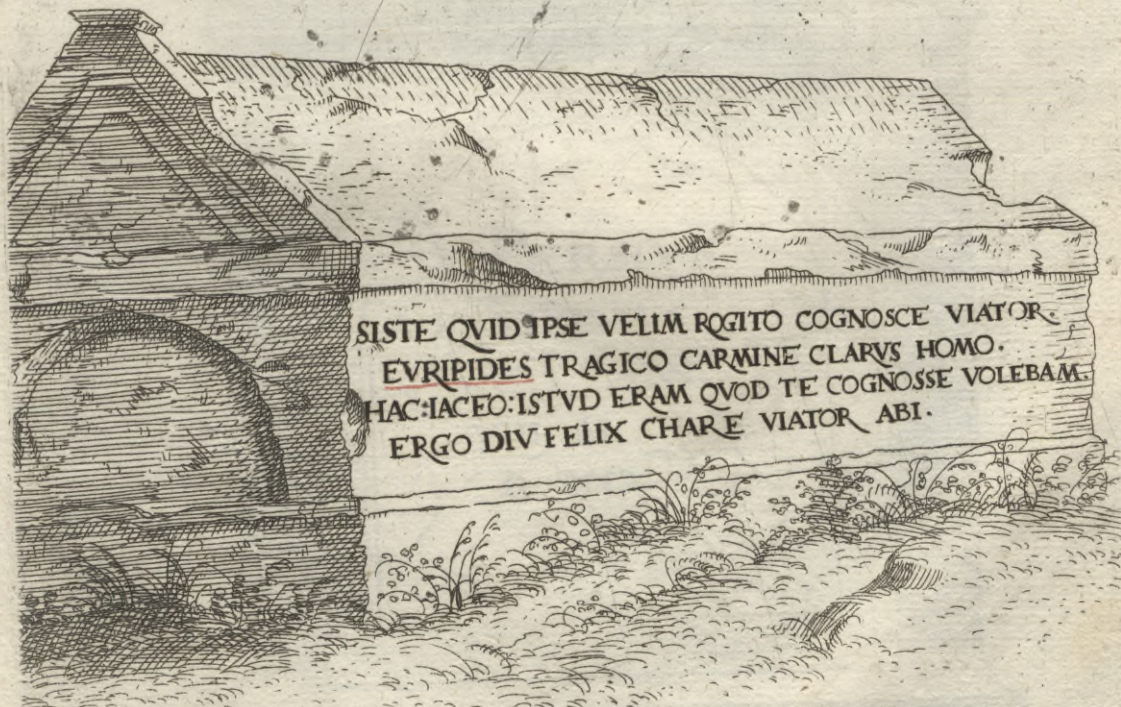 SISTE QVID IPSE VELIM ROGITO COGNOSCE VIATOR.
EVRIPIDES TRAGICO CARMINE CLARVS HOMO.
HAC:IACEO:ISTVD ERAM QVOD TE COGNOSSE VOLEBAM.
ERGO DIV FELIX CHARE VIATOR ABI.